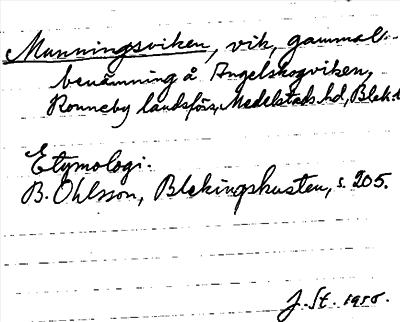 Munningsviken, vik, gammal
benämning å Angelskogviken,
Ronneby landsförs, Medelstads hd, Blek.
Etymologi.
B. Ohlsson, Blekingskusten, s. 205.
J. St. 1950.